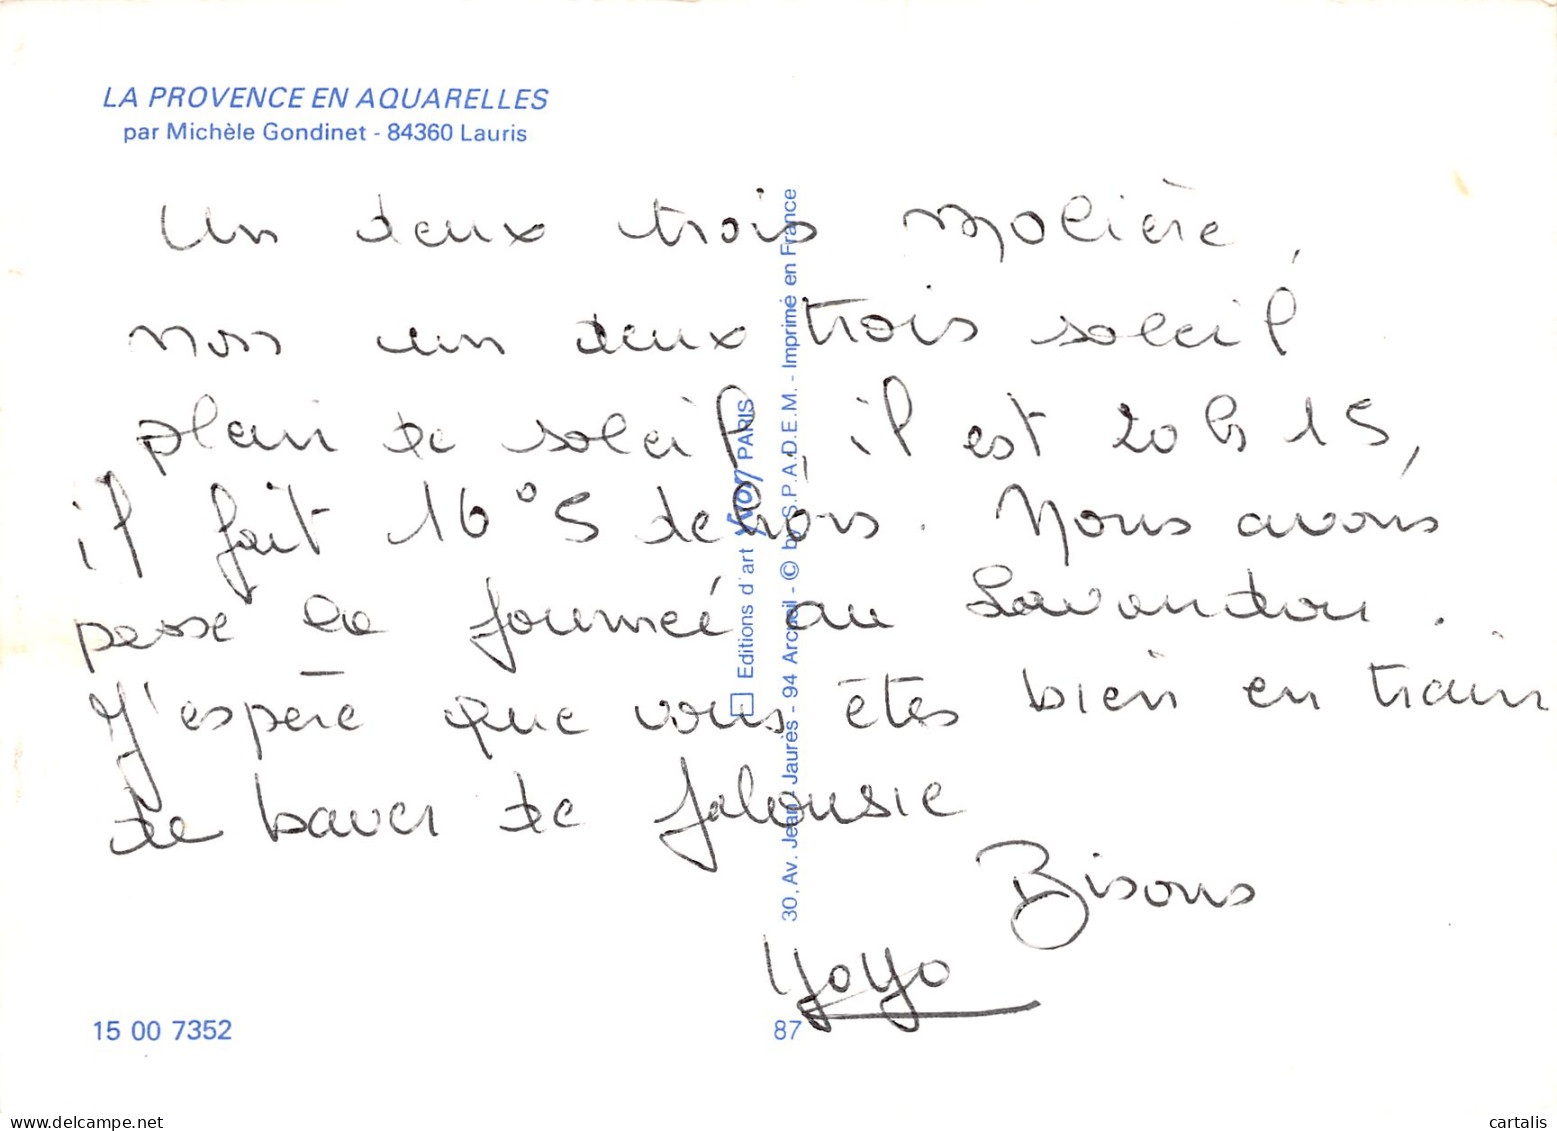 LA PROVENCE EN AQUARELLES
par Michèle Gondinet - 84360 Lauris
Un deux trois molière,
non un deux trois soleil
plein de soleil, il est 20 h 15,
il fait 16°5 dehors. Nous avons
passé la journée au Lavandou.
J'espère que vous êtes bien en train
de baver de jalousie
Bisous
YoYo
Editions d'art Yvon PARIS
30, Av. Jean-Jaurès - 94 Arcueil - © by S.P.A.D.E.M. - Imprimé en France
15 00 7352
87
delcampe.net
cartalis